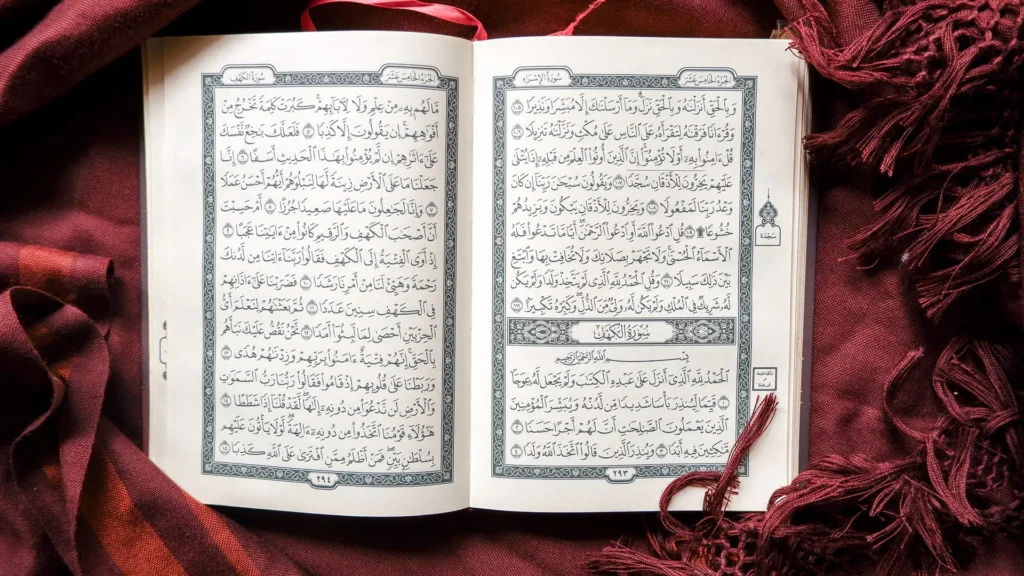 الجزء الخامس عشر
سورة الإسراء
وَبِٱلْحَقِّ أَنزَلْنَٰهُ وَبِٱلْحَقِّ نَزَلَ ۗ وَمَآ أَرْسَلْنَٰكَ إِلَّا مُبَشِّرًا وَنَذِيرًا ١٠٥
وَقُرْءَانًا فَرَقْنَٰهُ لِتَقْرَأَهُۥ عَلَى ٱلنَّاسِ عَلَىٰ مُكْثٍ وَنَزَّلْنَٰهُ تَنزِيلًا ١٠٦
قُلْ ءَامِنُوا۟ بِهِۦٓ أَوْ لَا تُؤْمِنُوٓا۟ ۚ إِنَّ ٱلَّذِينَ أُوتُوا۟ ٱلْعِلْمَ مِن قَبْلِهِۦٓ إِذَا يُتْلَىٰ
عَلَيْهِمْ يَخِرُّونَ لِلْأَذْقَانِ سُجَّدًا ١٠٧ وَيَقُولُونَ سُبْحَٰنَ رَبِّنَآ إِن كَانَ
وَعْدُ رَبِّنَا لَمَفْعُولًا ١٠٨ وَيَخِرُّونَ لِلْأَذْقَانِ يَبْكُونَ وَيَزِيدُهُمْ
خُشُوعًا ۩ ١٠٩ قُلِ ٱدْعُوا۟ ٱللَّهَ أَوِ ٱدْعُوا۟ ٱلرَّحْمَٰنَ ۖ أَيًّا مَّا تَدْعُوا۟ فَلَهُ
ٱلْأَسْمَآءُ ٱلْحُسْنَىٰ ۚ وَلَا تَجْهَرْ بِصَلَاتِكَ وَلَا تُخَافِتْ بِهَا وَٱبْتَغِ
بَيْنَ ذَٰلِكَ سَبِيلًا ١١٠ وَقُلِ ٱلْحَمْدُ لِلَّهِ ٱلَّذِى لَمْ يَتَّخِذْ وَلَدًا وَلَمْ يَكُن
لَّهُۥ شَرِيكٌ فِى ٱلْمُلْكِ وَلَمْ يَكُن لَّهُۥ وَلِىٌّ مِّنَ ٱلذُّلِّ ۖ وَكَبِّرْهُ تَكْبِيرًۢا ١١١
سجدة
سُورَةُ الكَهْفِ
بِسْمِ ٱللَّهِ ٱلرَّحْمَٰنِ ٱلرَّحِيمِ
ٱلْحَمْدُ لِلَّهِ ٱلَّذِىٓ أَنزَلَ عَلَىٰ عَبْدِهِ ٱلْكِتَٰبَ وَلَمْ يَجْعَل لَّهُۥ عِوَجَا ۜ
١ قَيِّمًا لِّيُنذِرَ بَأْسًا شَدِيدًا مِّن لَّدُنْهُ وَيُبَشِّرَ ٱلْمُؤْمِنِينَ
ٱلَّذِينَ يَعْمَلُونَ ٱلصَّٰلِحَٰتِ أَنَّ لَهُمْ أَجْرًا حَسَنًا ٢
مَّٰكِثِينَ فِيهِ أَبَدًا ٣ وَيُنذِرَ ٱلَّذِينَ قَالُوا۟ ٱتَّخَذَ ٱللَّهُ وَلَدًا ٤
٢٩٣
الجزء الخامس عشر
سورة الكهف
مَّا لَهُم بِهِۦ مِنْ عِلْمٍ وَلَا لِءَابَآئِهِمْ ۚ كَبُرَتْ كَلِمَةً تَخْرُجُ مِنْ
أَفْوَٰهِهِمْ ۚ إِن يَقُولُونَ إِلَّا كَذِبًا ٥ فَلَعَلَّكَ بَٰخِعٌ نَّفْسَكَ
عَلَىٰٓ ءَاثَٰرِهِمْ إِن لَّمْ يُؤْمِنُوا۟ بِهَٰذَا ٱلْحَدِيثِ أَسَفًا ٦ إِنَّا
جَعَلْنَا مَا عَلَى ٱلْأَرْضِ زِينَةً لَّهَا لِنَبْلُوَهُمْ أَيُّهُمْ أَحْسَنُ عَمَلًا
٧ وَإِنَّا لَجَٰعِلُونَ مَا عَلَيْهَا صَعِيدًا جُرُزًا ٨ أَمْ حَسِبْتَ
أَنَّ أَصْحَٰبَ ٱلْكَهْفِ وَٱلرَّقِيمِ كَانُوا۟ مِنْ ءَايَٰتِنَا عَجَبًا ٩
إِذْ أَوَى ٱلْفِتْيَةُ إِلَى ٱلْكَهْفِ فَقَالُوا۟ رَبَّنَآ ءَاتِنَا مِن لَّدُنكَ
رَحْمَةً وَهَيِّئْ لَنَا مِنْ أَمْرِنَا رَشَدًا ١٠ فَضَرَبْنَا عَلَىٰٓ ءَاذَانِهِمْ
فِى ٱلْكَهْفِ سِنِينَ عَدَدًا ١١ ثُمَّ بَعَثْنَٰهُمْ لِنَعْلَمَ أَىُّ
ٱلْحِزْبَيْنِ أَحْصَىٰ لِمَا لَبِثُوٓا۟ أَمَدًا ١٢ نَّحْنُ نَقُصُّ عَلَيْكَ نَبَأَهُم
بِٱلْحَقِّ ۚ إِنَّهُمْ فِتْيَةٌ ءَامَنُوا۟ بِرَبِّهِمْ وَزِدْنَٰهُمْ هُدًى ١٣
وَرَبَطْنَا عَلَىٰ قُلُوبِهِمْ إِذْ قَامُوا۟ فَقَالُوا۟ رَبُّنَا رَبُّ ٱلسَّمَٰوَٰتِ
وَٱلْأَرْضِ لَن نَّدْعُوَا۟ مِن دُونِهِۦٓ إِلَٰهًا ۖ لَّقَدْ قُلْنَآ إِذًا شَطَطًا ١٤
هَٰٓؤُلَآءِ قَوْمُنَا ٱتَّخَذُوا۟ مِن دُونِهِۦٓ ءَالِهَةً ۖ لَّوْلَا يَأْتُونَ عَلَيْهِم
بِسُلْطَٰنٍۭ بَيِّنٍ ۖ فَمَنْ أَظْلَمُ مِمَّنِ ٱفْتَرَىٰ عَلَى ٱللَّهِ كَذِبًا ١٥
٢٩٤